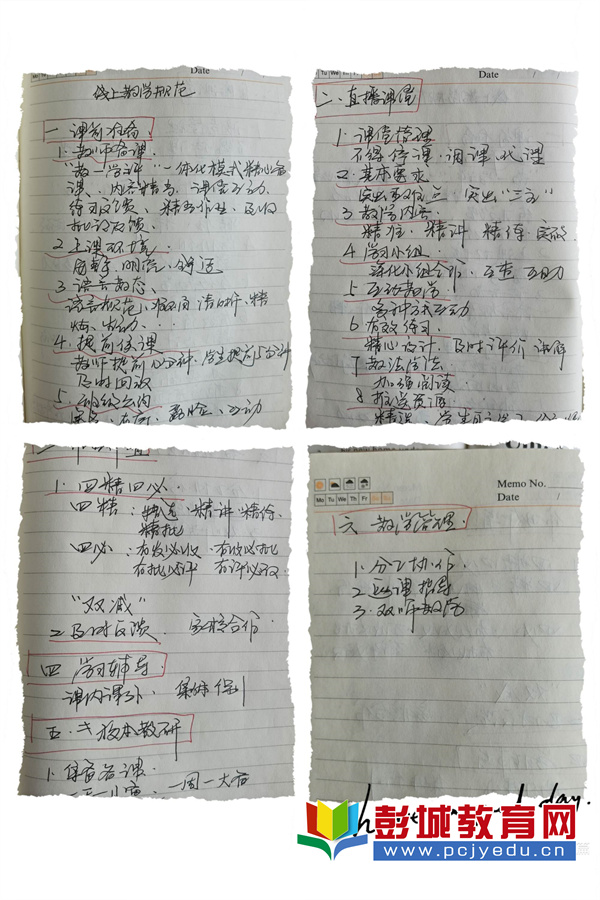 Date
线上教学规范
一 课前准备
1. 教师备课
"教—学—评"一体化模式精心备
课、内容精当、课堂互动、
练习反馈、精当作业、及时
批改反馈
2 上课环境
安静、明亮、舒适
3 语言教态
语言规范
4. 提前候课
教师提前10分钟、学生提前5分钟
及时回放
5
露脸、互动
Date
二、直播课堂
1. 课堂情课
不得停课、调课、代课
2. 基本要求
突出"三主"
3 教学内容
精准、精讲 精练、实效
4 学习小组
深化小组合作、互查 互助
5 互动教学
多种方式互动
6 有效练习
精心设计、及时评价 讲解
7 教法学法
加强阅读
8 推送资源
1. 四精四必
四精:精选"精讲"精练、
精批
四必:有发必收、有收必批
有批必评 有评必改
"双减"
2 及时反馈、家校合作
四 学习辅导
课内课外、集体 个别
五.校本教研
1. 集备备课
一周一大备
Memo No.
Mo Tu We Th Fr Sa Su
Date
六 教学管理
1. 分工协作
2 巡课指导
3. 双师教学
day.
彭城教育网
www.pcjyedu.cn